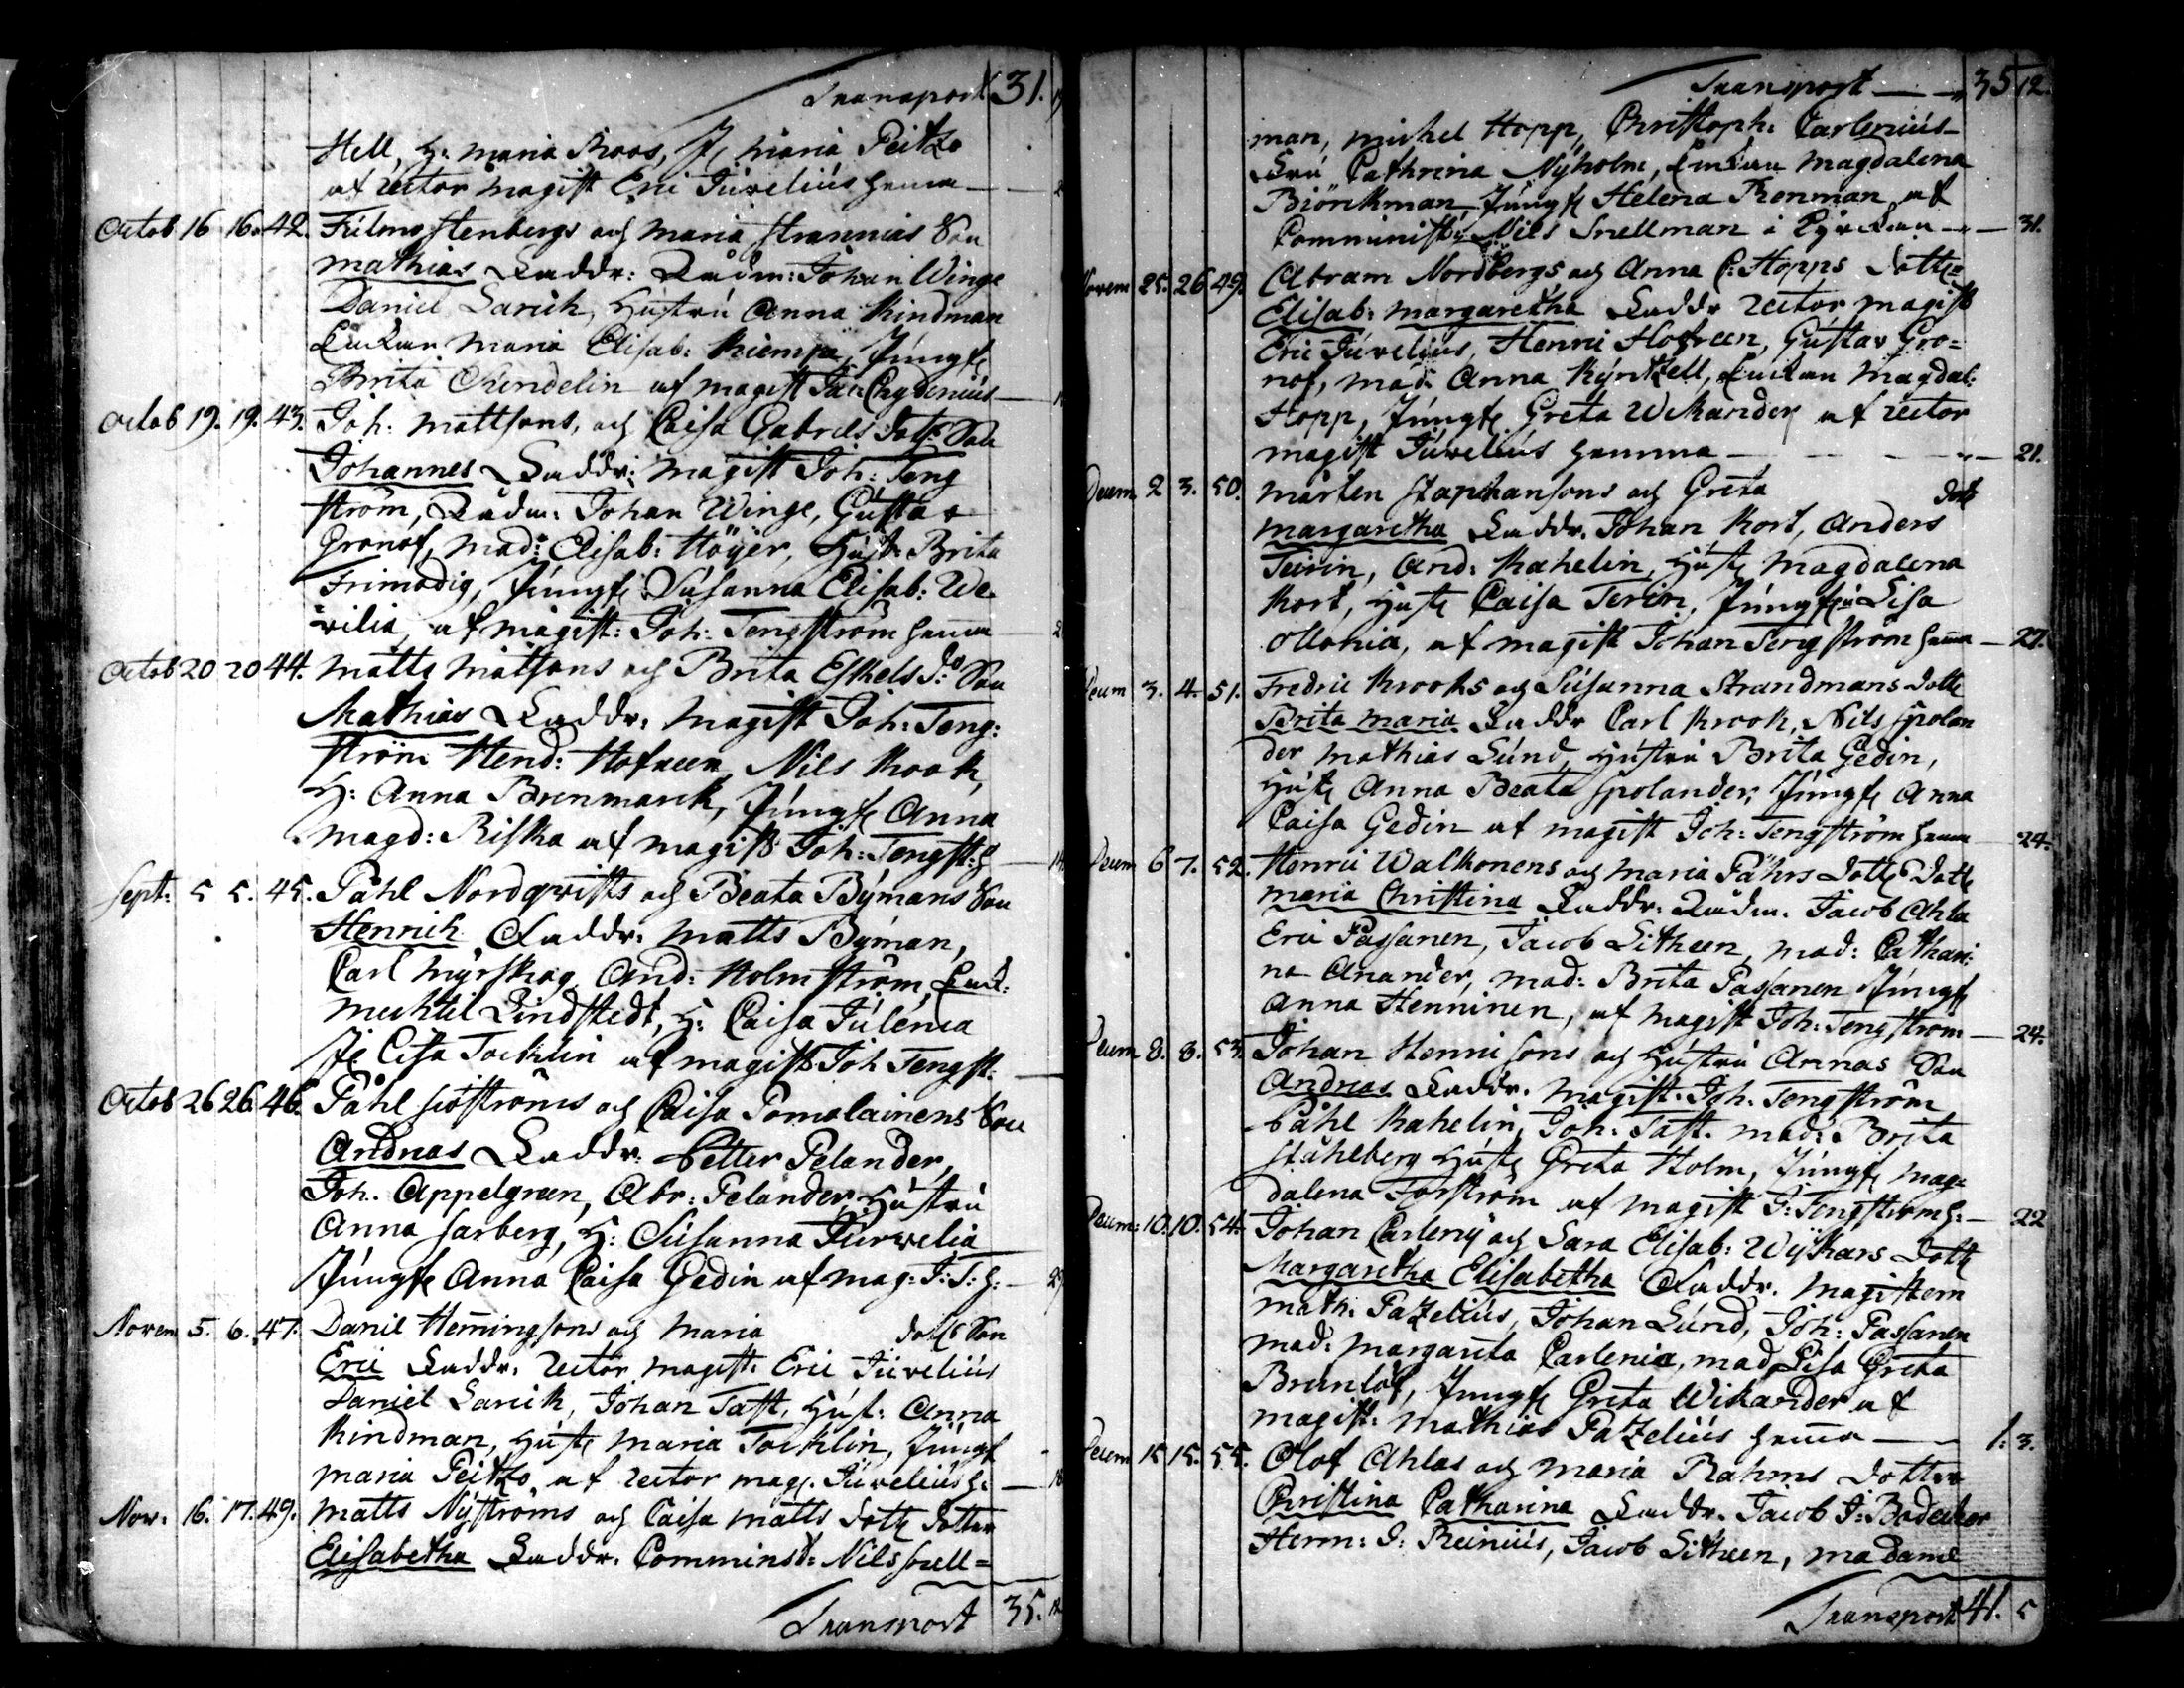 Transport 31.
Hell, H: Maria Roos, J, Maria Peitzo
af Rector Magist Eric Juvelius hemma — 2
Octob 16 16. 42. Stenbergs och Maria Son
Mathias Faddr: Rådm: Johan Winge
Daniel Larick, Hustru Anna Kindman
Enkan Maria Elisab: Kiempe, Jungf
Brita Chindelin af Magist Jac Chydenius —
Octob 19. 19. 43. Joh: Mattsons, och Caisa Gabriels dott: Son
Johannes Faddr: Magist Joh: Teng
ström, Rådm: Johan Winge, Gustav
Gronof, Mad: Elisab: Höyer, Hust: Brita
Frimodig, Jungf: Susanna Elisab: We
rilia, af Magist: Joh: Tengström hemma — 2
Octob 20 20 44. Matts Matsons och Brita Eskels d:o Son
Mathias Faddr: Magist Joh: Teng:
ström Hend: Hofreen, Nils Krook,
H: Anna Brenmarck, Jungf Anna
Magd: Riska af Magist Joh: Tengst: h — 14
Sept: 5 5. 45. Påhl Nordqvists och Beata Bÿmans Son
Henrich Faddr: Matts Bÿman,
Carl Mÿrskog, And: Holmström, Enk:
Mechtil Lindstedt, H: Caisa Julenia
Jf Lisa Tocklin af Magist Joh Tengst: —
Octob 26 26. 46. Påhl Siöströms och Caisa Pomalainens Son
Andreas Faddr: Petter Pelander,
Joh. Appelgreen, Abr: Pelander, Hustru
Anna Sarberg, H: Susanna Jurvelia
Jungf Anna Caisa Gedin af Mag: J: T: h: — 2
Novem 5. 6. 47. Daniel Hemingsons och Maria dott Son
Eric Faddr: Rector Magist: Eric Juvelius
Daniel Larick, Johan Tast, Hust: Anna
Kindman, Hust Maria Tocklin, Jungf
Maria Peitzo af Rector Mag. Juvelius h: — 18
Nov: 16. 17. 49. Matts Nÿströms och Caisa Matts dott dotter
Elisabetha Faddr: Comminist: Nils Snell=
Transport 35. 12
Transport — 35 12.
man, Michel Hopp, Christoph: Carlenius
Fru Cathrina Nÿholm, Enkan Magdalena
Biörckman, Jungf Helena Renman af
Comminist: Nils Snellman i Kÿrckan — 31.
Novem 25. 26 49. Abram Nordbergs och Anna C: Hopps dotter
Elisab: Margaretha Faddr Rector Magist
Eric Juvelius, Henric Hofreen, Gustav Gro=
nof, Mad: Anna Kÿntzell, Enkan Magdal:
Hopp, Jungf Greta Wikander af Rector
Magist Juvelius hemma — 21.
Decem 2 3. 50. Mårten Staphansons och Greta dott
Margaretha Faddr. Johan Kort, Anders
Terin, And: Kahelin, Hust Magdalena
Kort, Hust Caisa Terin, Jungf: Lisa
Ollonia, af Magist Johan Tengström hema — 27.
Decem 3. 4. 51. Fredric Krooks och Susanna Strandmans dott
Brita Maria Faddr Carl Krook, Nils Spolan
der Mathias Lund, Hustru Brita Gedin,
Hust Anna Beata Spolander, Jungf Anna
Caisa Gedin af Magist Joh: Tengström hema — 24.
Decem 6 7. 52. Henric Walkonens och Maria Påhrs dott dott
Maria Christina Faddr. Rådm. Jacob Ahla
Eric Passanen, Jacob Litheen, Mad: Cathari:
na Anander, Mad: Brita Passanen Jungf
Anna Henninen, af Magist Joh: Tengström — 24.
Decem 8. 8. 53. Johan Hennisons och Hustru Annas Son
Andreas Faddr. Magist: Joh: Tengström
Påhl Kahelin, Joh: Tast. Mad: Brita
Ståhlberg Hust Greta Holm, Jungf Mag:
dalena Forström af Magist J: Tengström h: — 22
Decem: 10. 10. 54. Johan Carlenÿ och Sara Elisab: Wÿkars dott
Margaretha Elisabetha Faddr. Magistern
Math: Pazelius, Johan Lund, Joh: Passanen
Mad: Margareta Carlenia, Mad: Lisa Greta
Brunlöf, Jungf Greta Wikander af
Magist: Mathias Pazelius hemma — 1: 3.
Decem 15 15. 55. Olof Ahlas och Maria Rahms dotter
Christina Catharina Faddr. Jacob J: Badecker
Herm: J: Reinius, Jacob Litheen, Madame
Transport 41. 5